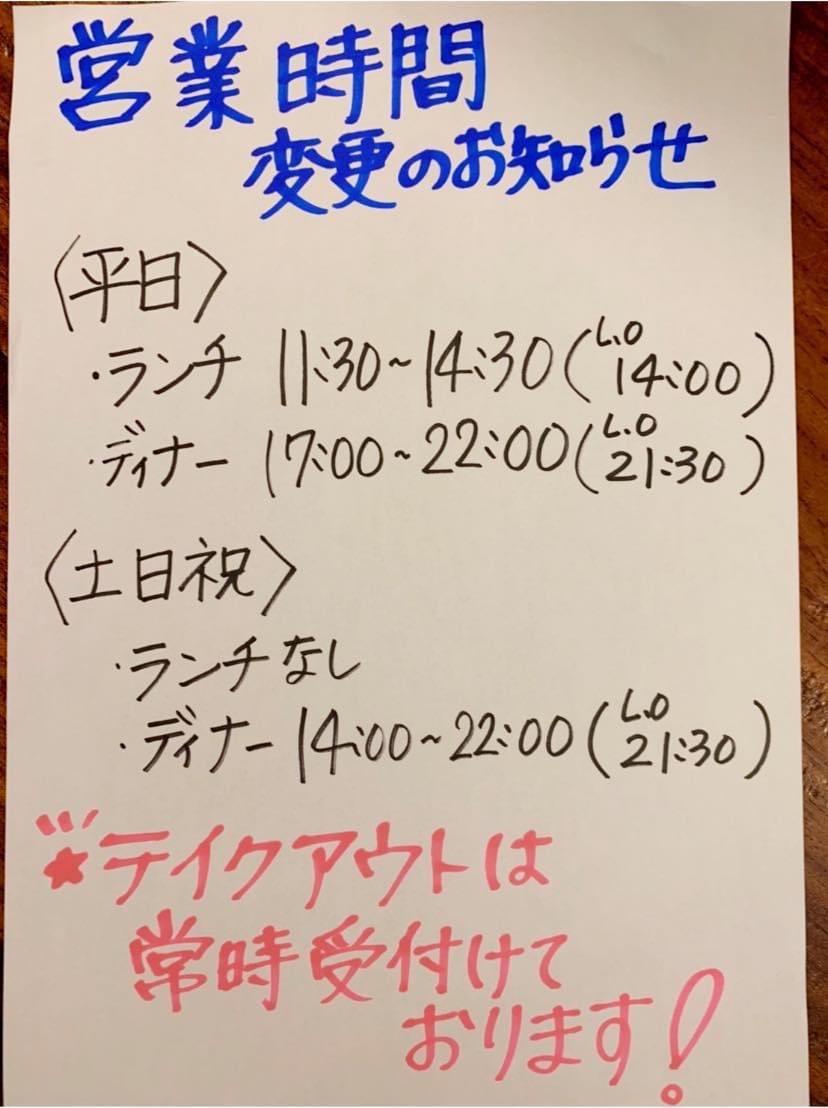 営業時間
変更のお知らせ
〈平日〉
・ランチ 11:30~14:30(L.O 14:00)
・ディナー 17:00~22:00(L.O 21:30)
〈土日祝〉
・ランチなし
・ディナー 14:00~22:00(L.O 21:30)
★テイクアウトは
常時受付けて
おります!